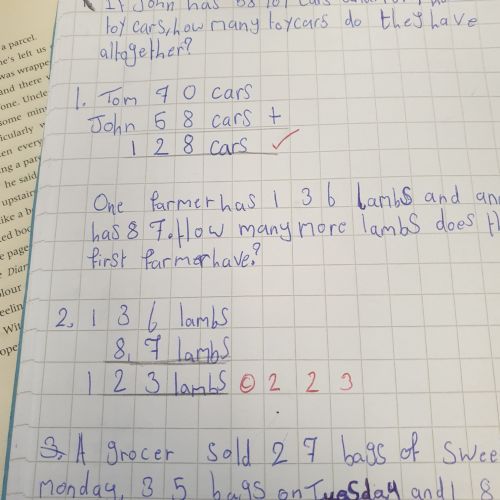 If John has
toy cars, how many toycars do they have
altogether?
1. Tom 7 0 cars
John 5 8 cars +
1 2 8 cars ✓
One farmer has 1 3 6 lambs and an
has 8 7. How many more lambs does th
first farmer have?
2. 1 3 6 lambs
8, 7 lambs
1 2 3 lambs © 2 2 3
3. A grocer sold 2 7 bags of swee
monday, 3 5 bags on Tuesday and 1 8
a parcel.
he's left us
was wrappe
and there
one. Uncle
some min
icularly
en every
ng a par
he said
upstair
like a b
ed boo
e page
Diar
olour
eelin
Wit
ope